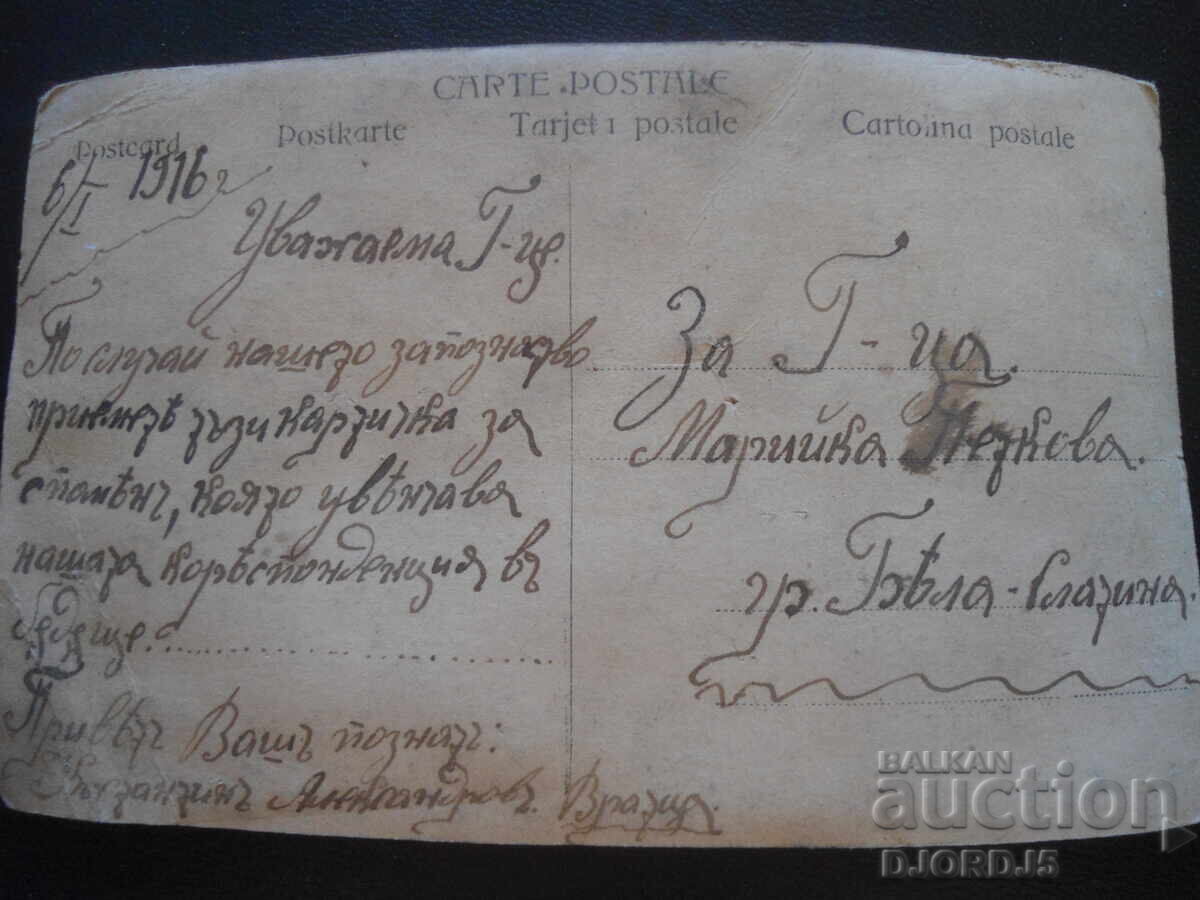 CARTE POSTALE
Postcard Postkarte Tarjeta postale Cartolina postale
6/I 1916 г
Уважаема Г-це.
По случай нашето запознство
приемете тъзи картичка за
спомѣнъ, която увѣнчава
нашата корѣспонденция въ
бъдеще.
Привѣтъ Вашъ познатъ:
Александровъ. Вратца.
За Г-ца.
Марийка Петкова.
гр. Бѣла-Слатина.
BALKAN
auction
DJORDJ5